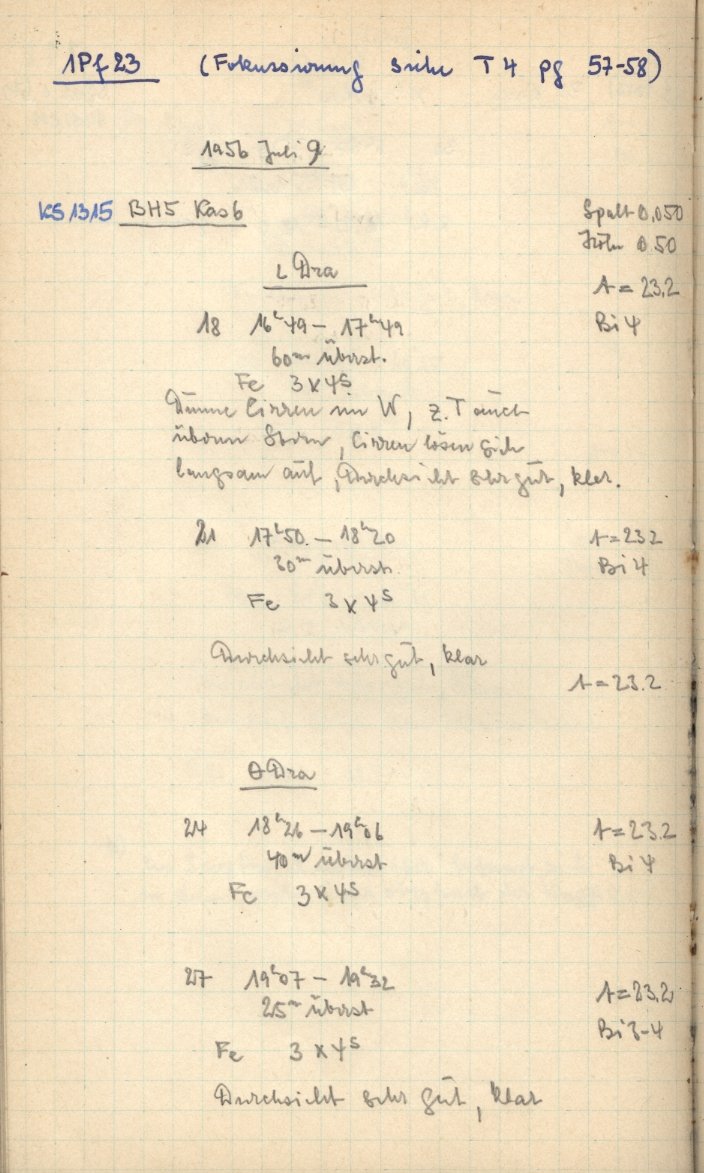 1Pf23 (Fokussierung siehe T4 pg 57-58)
1956 Juli 9
KS 1315 BH5 Kas6 Spalt 0,050
Höhe 0.50
ι Dra
A = 23.2
18 16ʰ49 – 17ʰ49 Bi 4
60ᵐ überst.
Fe 3 x 4ˢ
Dünne Cirren im W, z.T auch
überm Stern, Cirren lösen sich
langsam auf, Durchsicht sehr gut, klar.
21 17ʰ50 – 18ʰ20 A = 23.2
30ᵐ überst. Bi 4
Fe 3 x 4ˢ
Durchsicht sehr gut, klar
A = 23.2
θ Dra
24 18ʰ26 – 19ʰ06 A = 23.2
40ᵐ überst Bi 4
Fe 3 x 4ˢ
27 19ʰ07 – 19ʰ32 A = 23.2
25ᵐ überst
Bi 3-4
Fe 3 x 4ˢ
Durchsicht sehr gut, klar